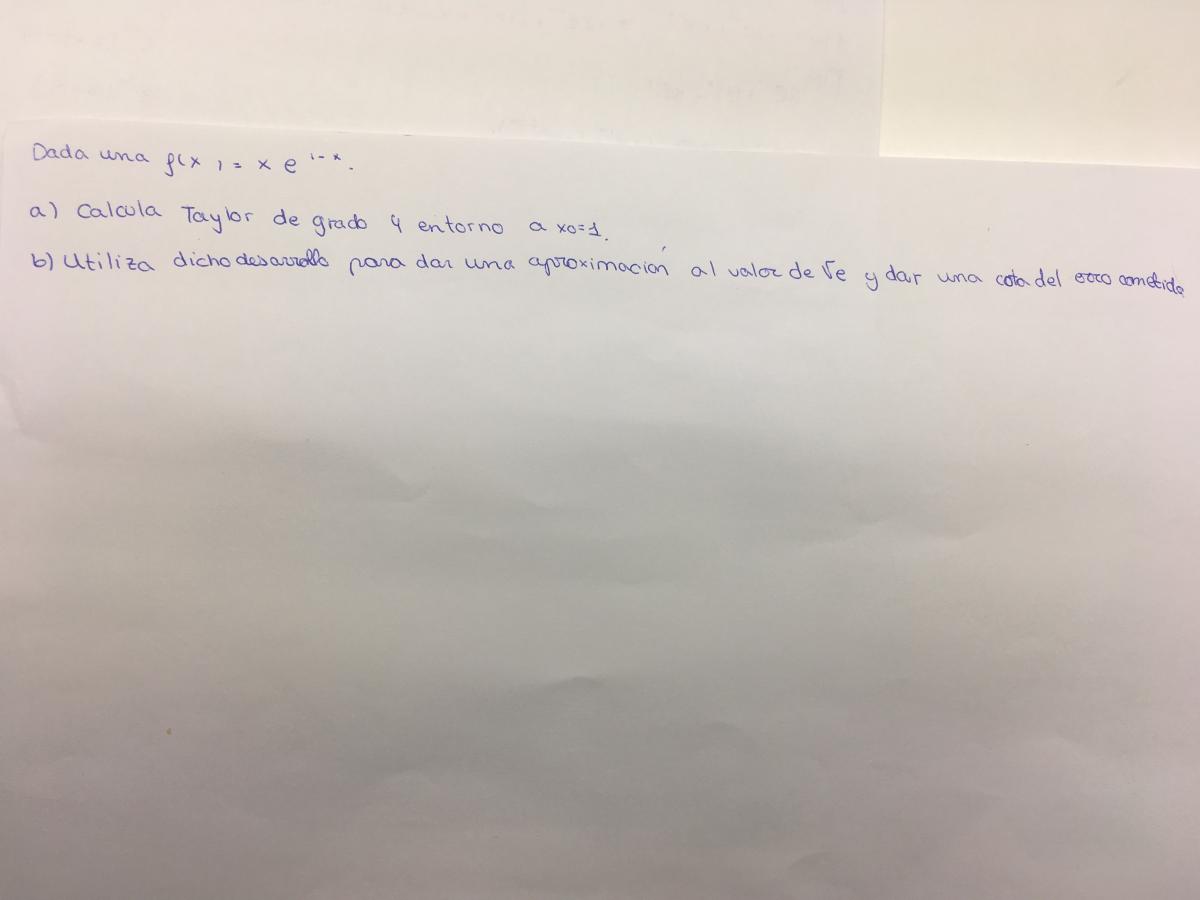 Dada una f(x) = x e^{1-x}.
a) Calcula Taylor de grado 4 entorno a x0=1.
b) Utiliza dicho desarrollo para dar una aproximación al valor de √e y dar una cota del error cometido